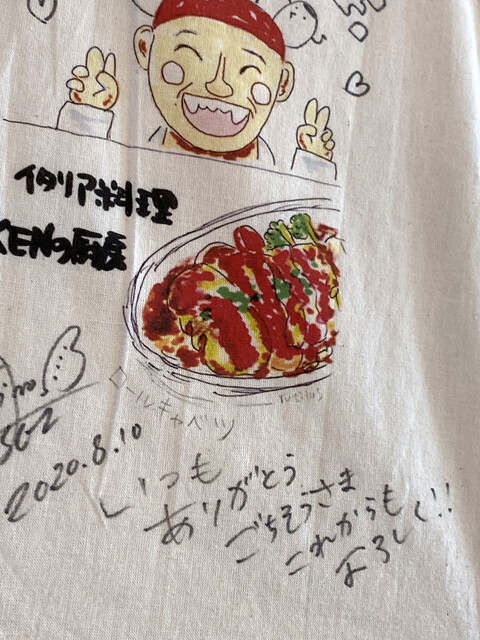 イタリア料理
KENの厨房
ロールキャベツ
2020.8.10
いつも
ありがとう
ごちそうさま
これからも
よろしく!!